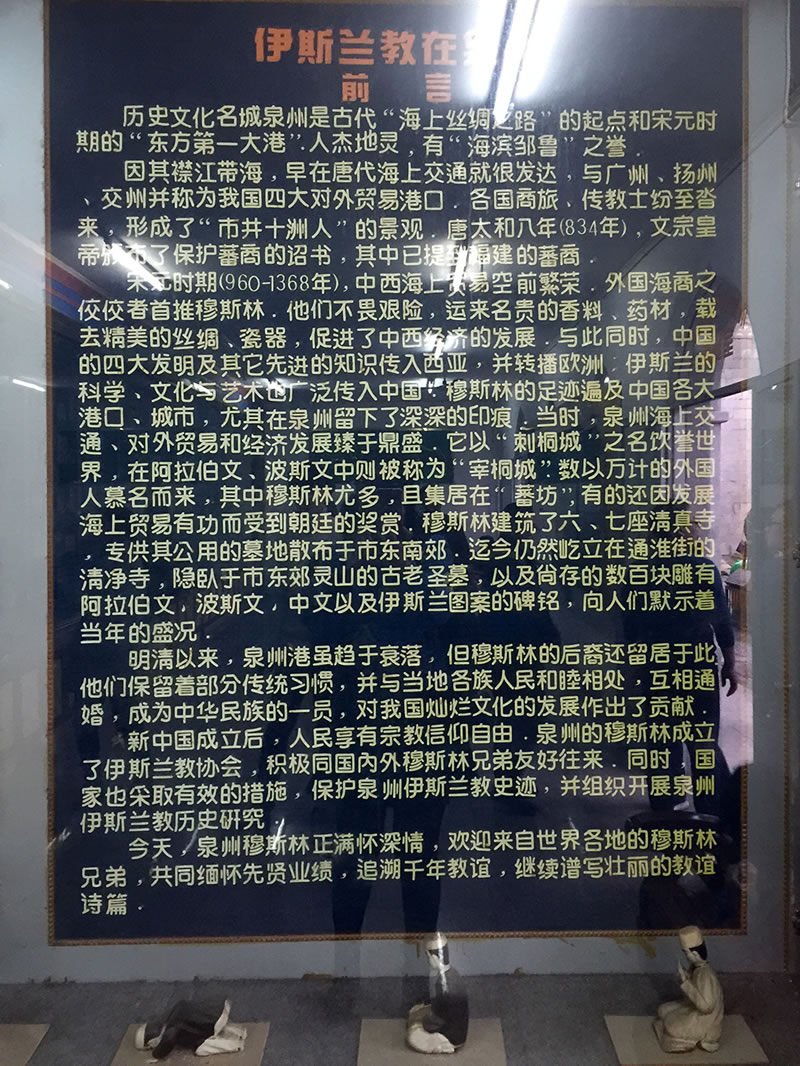 伊斯兰教在泉
前 言
历史文化名城泉州是古代“海上丝绸之路”的起点和宋元时
期的“东方第一大港”.人杰地灵,有“海滨邹鲁”之誉.
因其襟江带海,早在唐代海上交通就很发达,与广州、扬州
、交州并称为我国四大对外贸易港口.各国商旅、传教士纷至沓
来,形成了“市井十洲人”的景观.唐太和八年(834年),文宗皇
帝颁布了保护蕃商的诏书,其中已提到福建的蕃商.
宋元时期(960-1368年),中西海上贸易空前繁荣.外国海商之
佼佼者首推穆斯林.他们不畏艰险,运来名贵的香料、药材,载
去精美的丝绸、瓷器,促进了中西经济的发展.与此同时,中国
的四大发明及其它先进的知识传入西亚,并转播欧洲.伊斯兰的
科学、文化与艺术也广泛传入中国.穆斯林的足迹遍及中国各大
港口、城市,尤其在泉州留下了深深的印痕.当时,泉州海上交
通、对外贸易和经济发展臻于鼎盛.它以“刺桐城”之名饮誉世
界,在阿拉伯文、波斯文中则被称为“宰桐城”数以万计的外国
人慕名而来,其中穆斯林尤多,且集居在“番坊”,有的还因发展
海上贸易有功而受到朝廷的奖赏.穆斯林建筑了六、七座清真寺
,专供其公用的墓地散布于市东南郊.迄今仍然屹立在通淮街的
清净寺,隐卧于市东郊灵山的古老圣墓,以及尚存的数百块雕有
阿拉伯文,波斯文,中文以及伊斯兰图案的碑铭,向人们默示着
当年的盛况.
明清以来,泉州港虽趋于衰落,但穆斯林的后裔还留居于此
他们保留着部分传统习惯,并与当地各族人民和睦相处,互相通
婚,成为中华民族的一员,对我国灿烂文化的发展作出了贡献.
新中国成立后,人民享有宗教信仰自由.泉州的穆斯林成立
了伊斯兰教协会,积极同国内外穆斯林兄弟友好往来.同时,国
家也采取有效的措施,保护泉州伊斯兰教史迹,并组织开展泉州
伊斯兰教历史研究
今天,泉州穆斯林正满怀深情,欢迎来自世界各地的穆斯林
兄弟,共同缅怀先贤业绩,追溯千年教谊,继续谱写壮丽的教谊
诗篇.